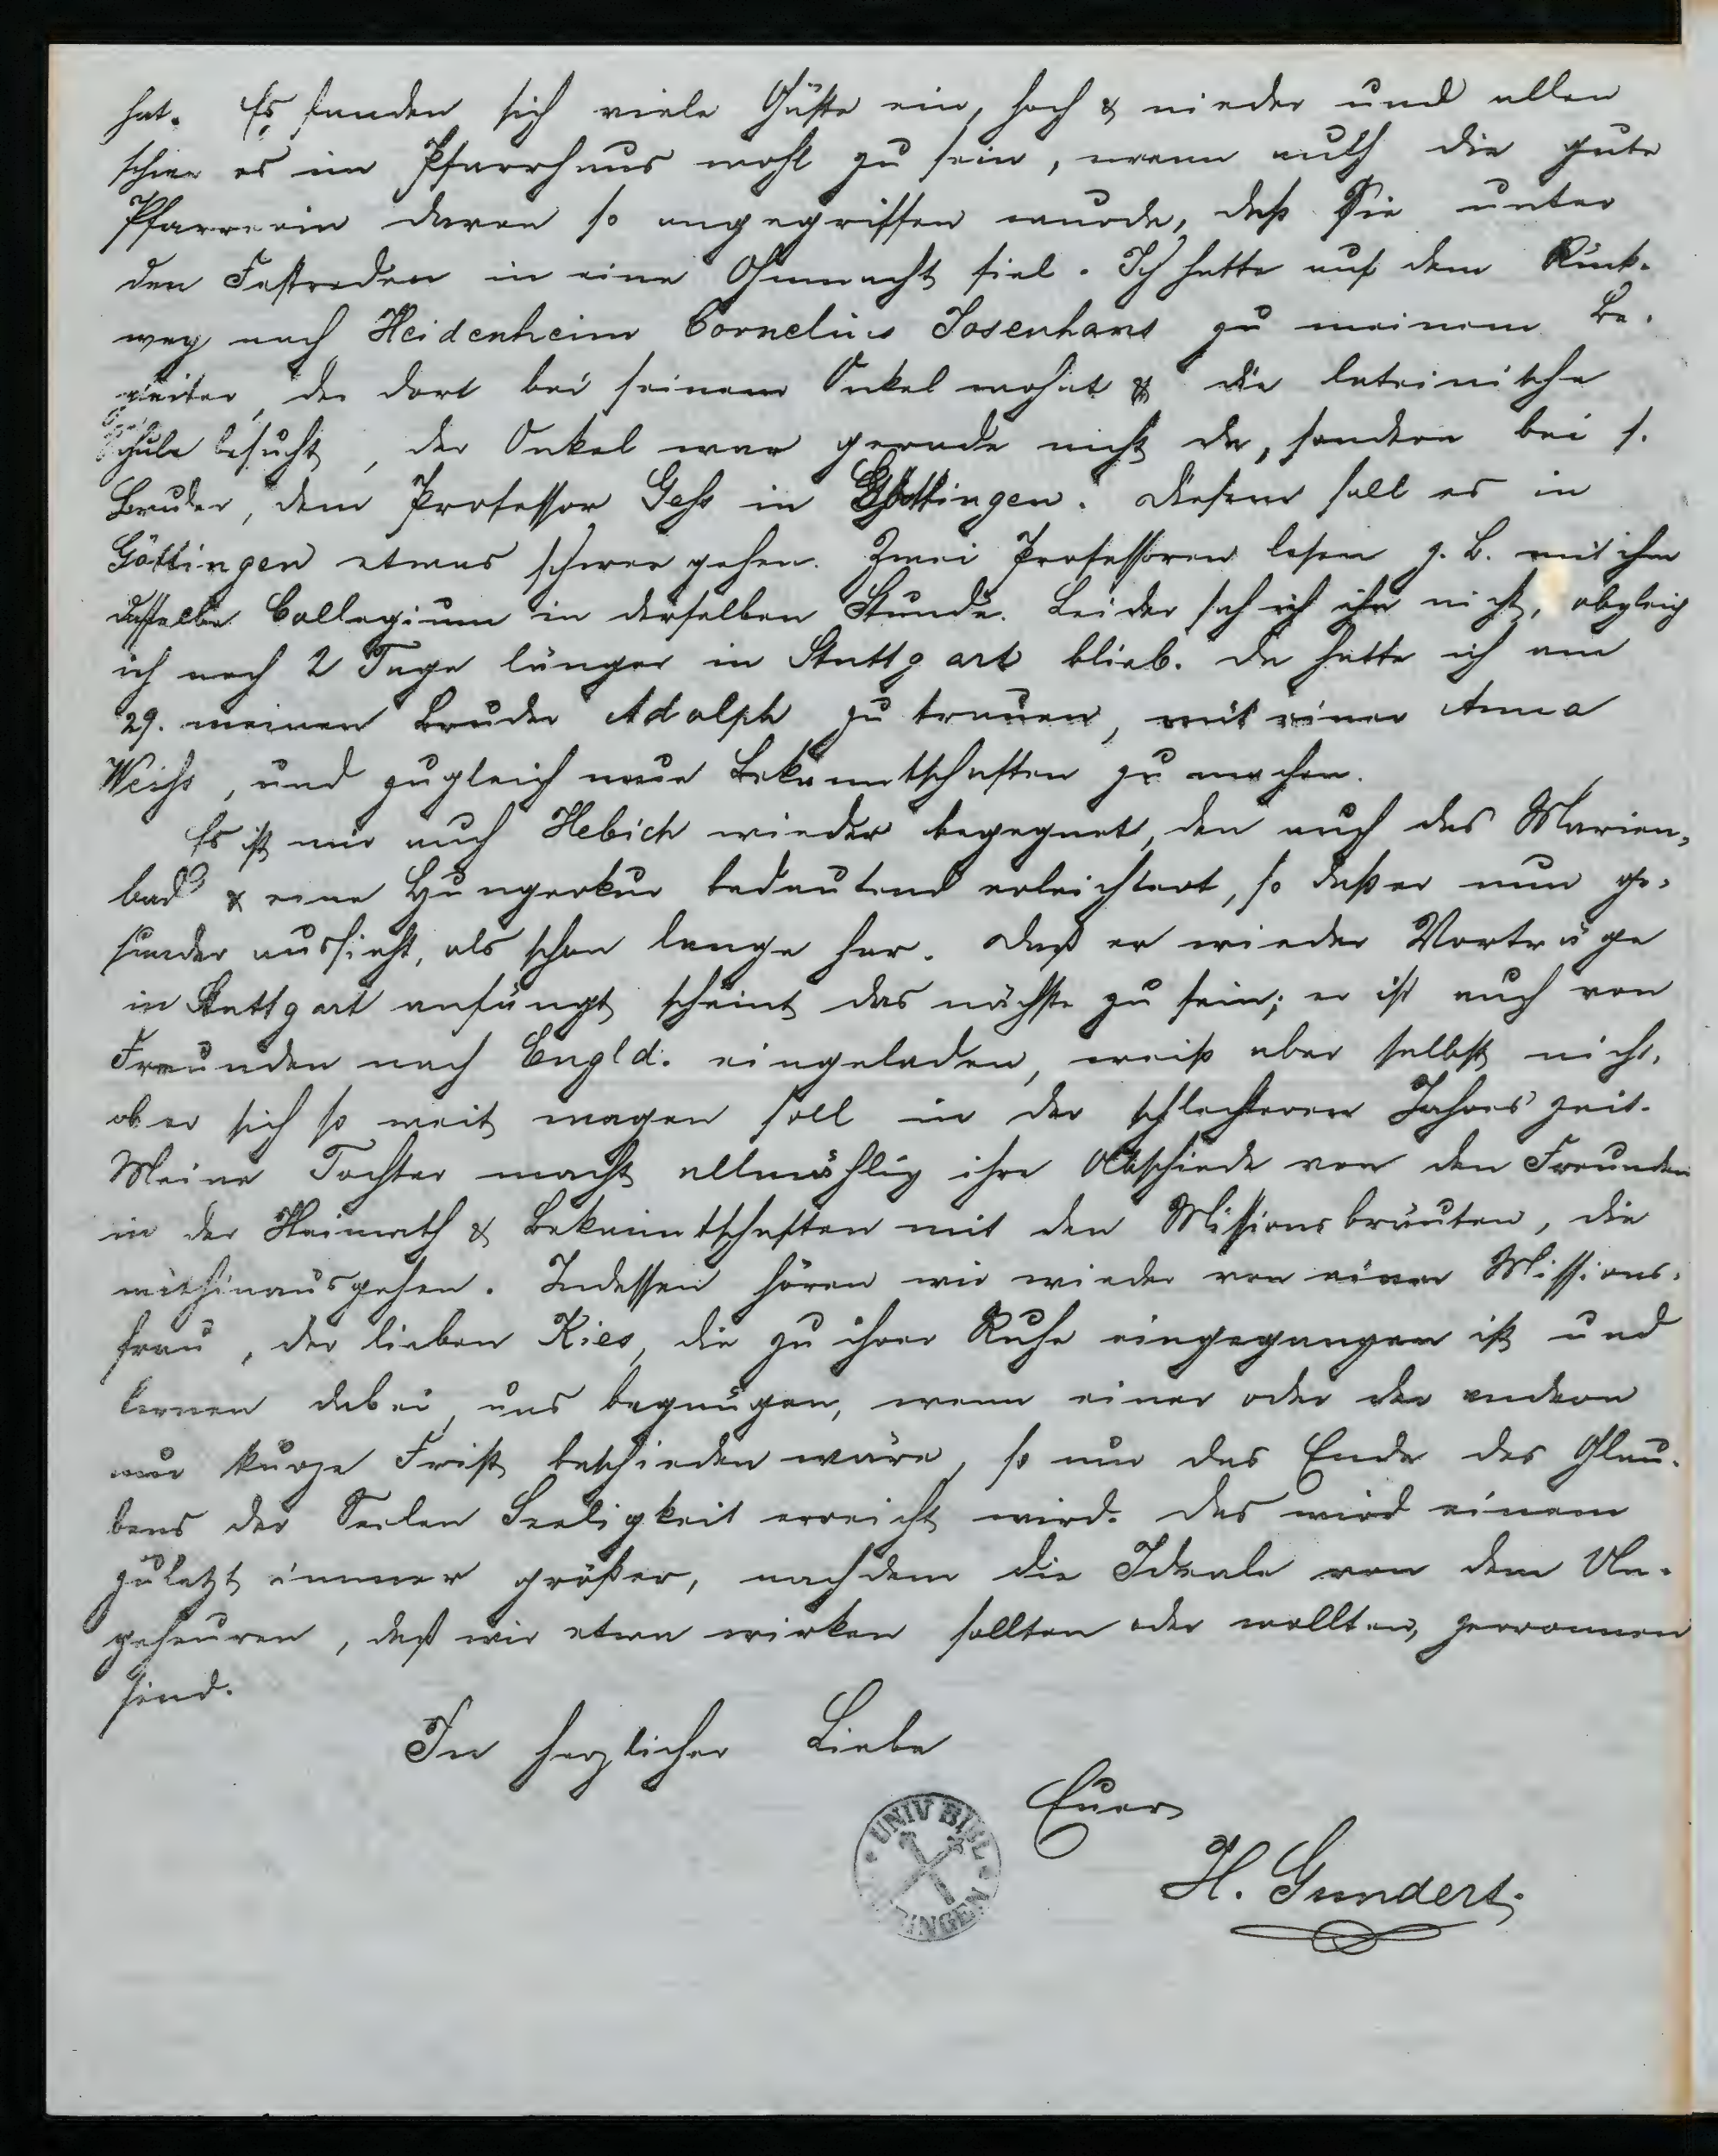 hat. Es fanden sich viele Gäste ein, hoch & nieder und allen
schien es im Pfarrhaus wohl zu sein, wenn auch die gute
Pfarrerin davon so angegriffen wurde, daß Sie unter
den Festreden in eine Ohnmacht fiel. Ich hatte auf dem Rück-
weg nach Heidenheim Cornelius Josenhans zu meinem Be-
gleiter, der dort bei seinem Onkel wohnt & die lateinische
Schule besucht, der Onkel war gerade nicht da, sondern bei s.
Bruder, dem Professor Gess in Göttingen. Diesem soll es in
Göttingen etwas schwer gehen. Zwei Professoren lesen z. B. mit ihm
dasselbe Collegium in derselben Stunde. Leider sah ich ihn nicht, obgleich
ich noch 2 Tage länger in Stuttgart blieb. Da hatte ich am
29. meinen Bruder Adolph zu trauen, mit einer Anna
Weiss, und zugleich neue Bekanntschaften zu machen.
Es ist mir auch Hebich wieder begegnet, den auch das Marien-
bad & eine Hungerkur bedeutend erleichtert, so daß er nun ge-
sunder aussieht, als schon lange her. Daß er wieder Vorträge
in Stuttgart anfängt scheint das nächste zu sein; er ist auch von
Freunden nach Engld. eingeladen, weiß aber selbst nicht,
ob er sich so weit wagen soll in der schlechteren Jahreszeit.
Meine Tochter macht allmählig ihre Abschiede von den Freunden
in der Heimath & Bekanntschaften mit den Missionsbräuten, die
mithinausgehen. Indessen hören wir wieder von einer Missions-
frau, der lieben Kies, die zu ihrer Ruhe eingegangen ist und
lernen dabei, uns begnügen, wenn einer oder der andern
nur kurze Frist beschieden wäre, so nur das Ende des Glau-
bens der Seelen Seeligkeit erreicht wird. Das wird einem
zuletzt immer größer, nachdem die Ideale von dem Un-
geheuren, das wir etwa wirken sollten oder wollten, zerronnen
sind.
In herzlicher Liebe
Euer
H. Gundert.
UNIV BIBL